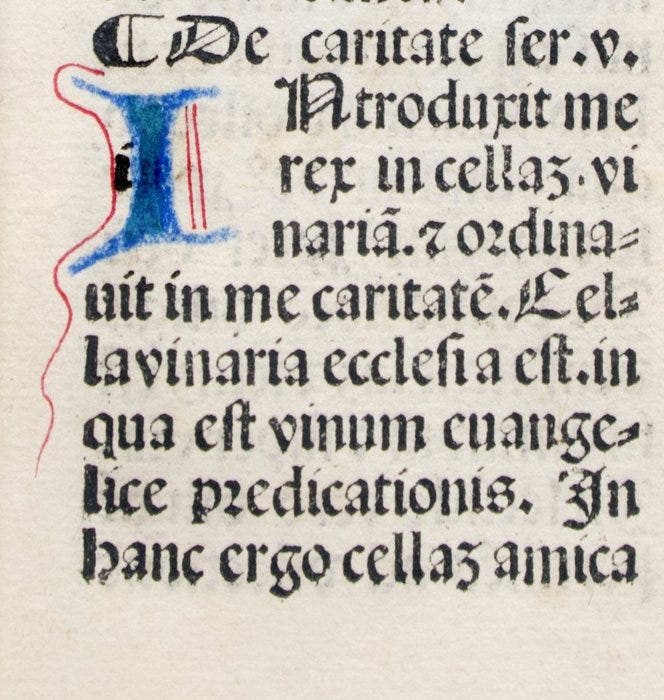 ¶ De caritate ser.v.
INtroduxit me
rex in cellaꝫ. vi
nariã. ⁊ ordina⸗
uit in me caritatē. Cel⸗
la vinaria ecclesia est. in
qua est vinum euange⸗
lice predicationis. In
hanc ergo cellaꝫ amica